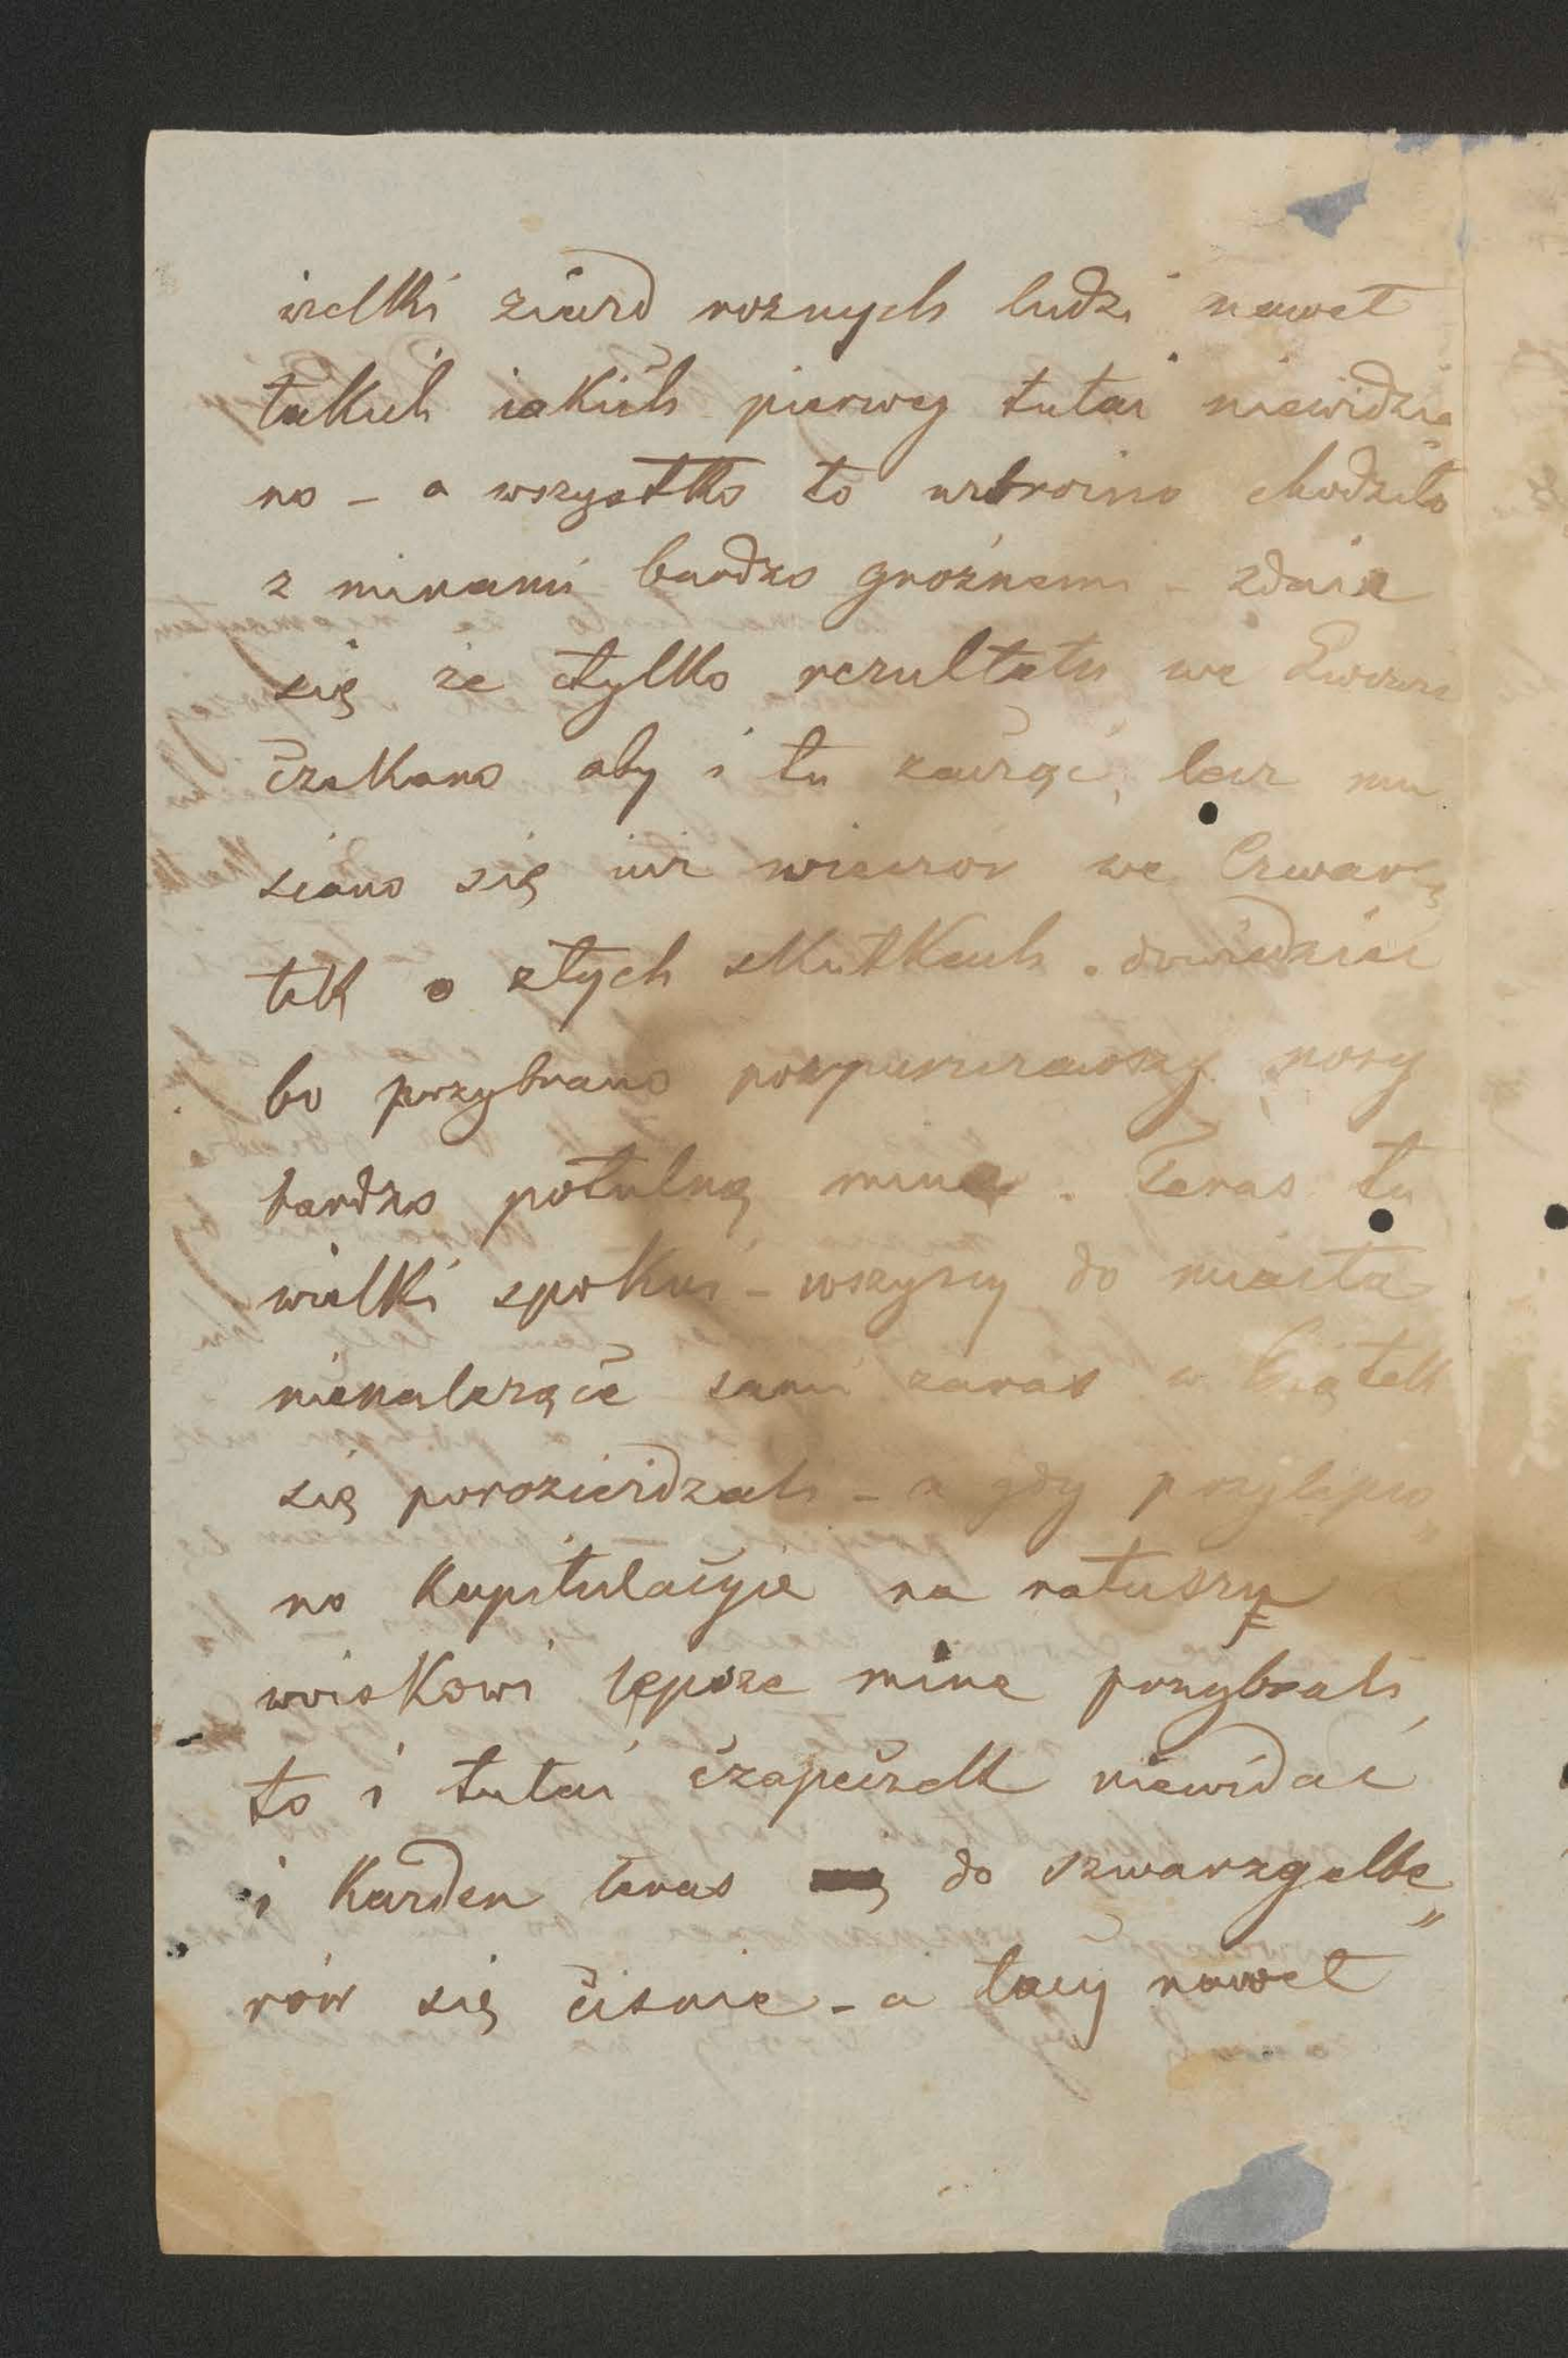 wielki ziazd roznych ludzi nawet
takich iakich pierwey tutai niewidzia„
no – a wszystko to uzbroino chodziło
z minami bardzo groźnemi – zdaie
się że tylko rezultatu we Lwowie
czekano aby i tu zacząć, lecz mu
siano się iuz wieczor we Czwar„
tek o złych skutkach dowiedziec
bo przybrano pospuszczawszy nosy
bardzo potulną mine. Teras tu
wielki spokoi – wszyscy do miasta
nienalezące sami zaras w Piątek
się porozieżdzali – a gdy przylepio„
no Kapitulacyie na ratuszu
woiskowi lepsze mine przybrali,
to i tutai czapeczek niewidac
i Karden teras do szwarzgelbe„
rów się cisnie – a tacy nawet